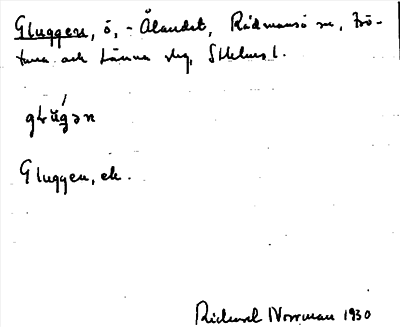 Gluggen, ö, - Ålandet, Rådmansö sn, Frö-
tuna och Länna skg, Sthlms l.
Gluggen, ek.
Rickard Norrman 1930